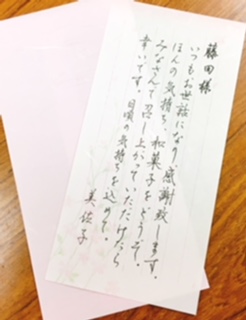 藤田様
いつもお世話になり、感謝致します。
ほんの気持ち、和菓子をどうぞ。
みなさんで召し上がっていただけたら
幸いです。日頃の気持ちを込めて。
美佐子